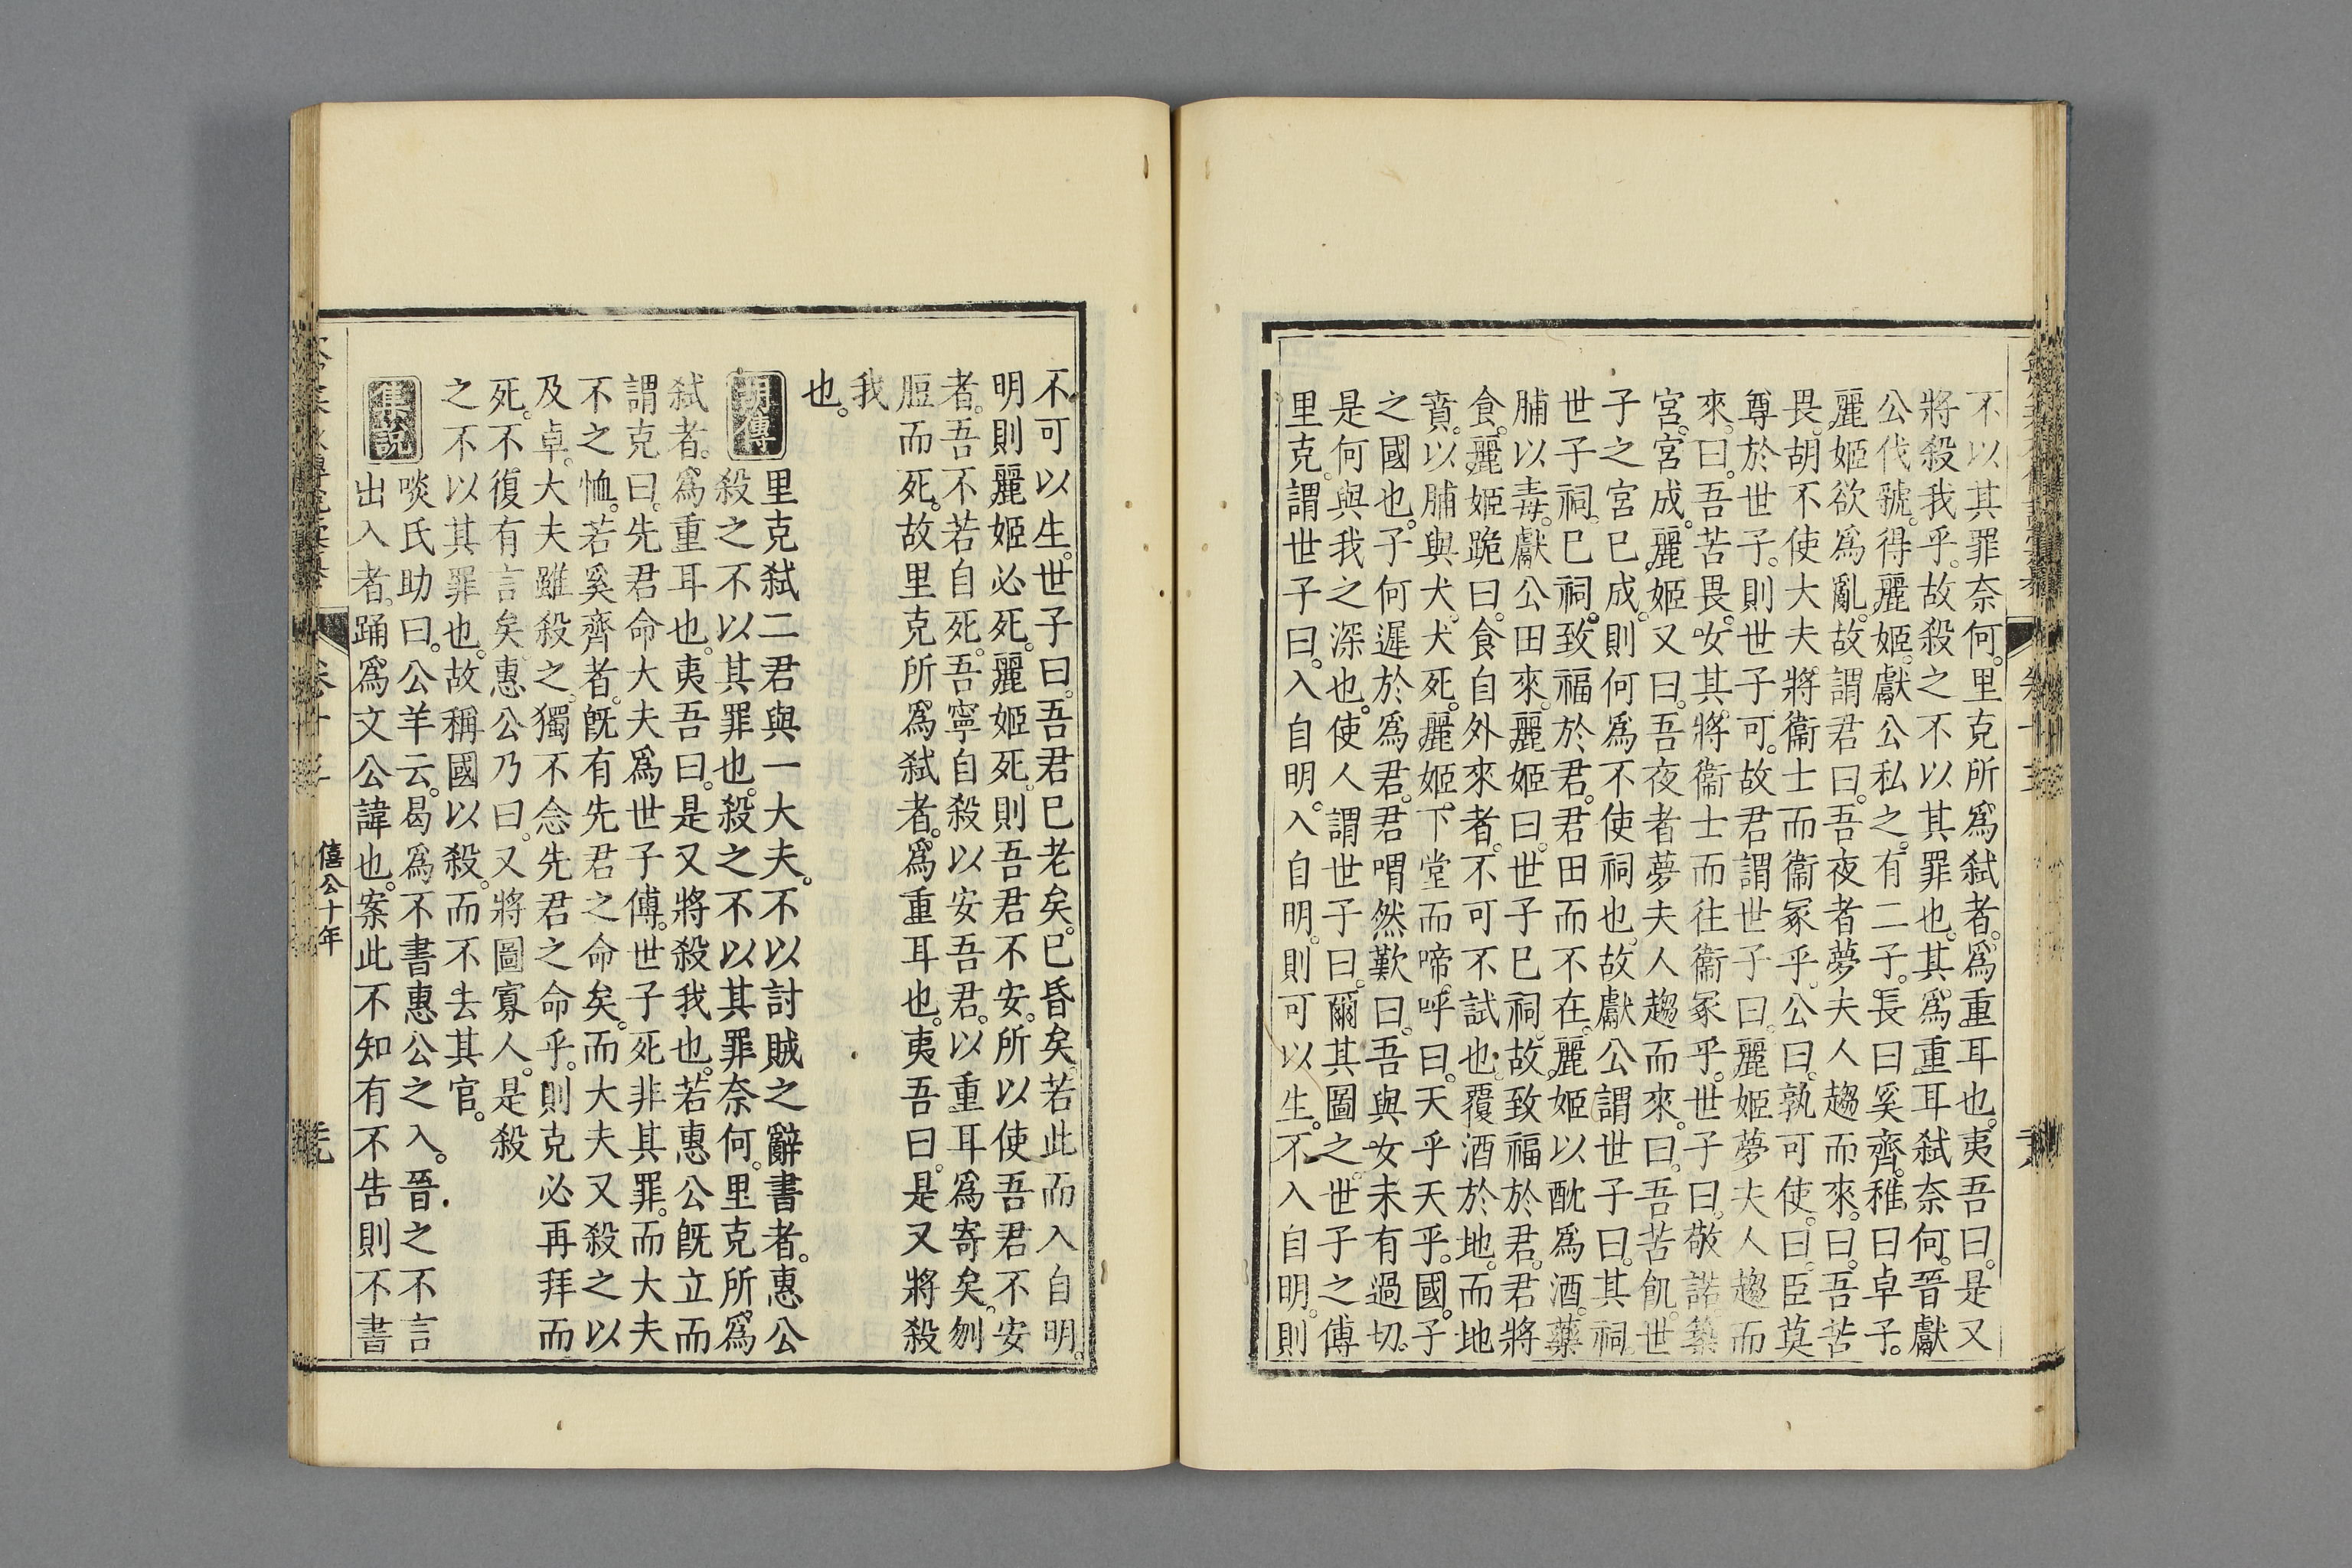 不以其罪奈何。里克所爲弑者。爲重耳也。夷吾曰。是又
將殺我乎。故殺之不以其罪也。其爲重耳弑奈何。晉獻
公代虢。得麗姬。獻公私之。有二子。長曰奚齊。稚曰卓子。
麗姬欲爲亂。故謂君曰。吾夜者夢夫人趨而來。曰。吾苦
畏。胡不使大夫將衞士而衞冢乎。公曰。孰可使。曰。臣莫
尊於世子。則世子可。故君謂世子曰。麗姬夢夫人趨而
來。曰。吾苦畏。女其將衞士而往衞冢乎。世子曰。敬諾。築
宮。宮成。麗姬又曰。吾夜者夢夫人趨而來。曰。吾苦飢。世
子之宮已成。則何爲不使祠也。故獻公謂世子曰。其祠。
世子祠。已祠。致福於君。君田而不在。麗姬以酖爲酒。藥
脯以毒。獻公田來。麗姬曰。世子已祠。故致福於君。君將
食。麗姬跪曰。食自外來者。不可不試也。覆酒於地。而地
賁。以脯與犬。犬死。麗姬。下堂而啼。呼曰。天乎天乎。國。子
之國也。子何遲於爲君。君喟然歎曰。吾與女未有過切。
是何與我之深也。使人謂世子曰。爾其圖之。世子之傅
里克。謂世子曰。入自明。入自明。則可以生。不入自明。則
不可以生。世子曰。吾君已老矣。已昏矣。若此而入自明。
明則麗姬必死。麗姬死。則吾君不安。所以使吾君不安
者。吾不若自死。吾寧自殺以安吾君。以重耳爲寄矣。刎
脰而死。故里克所爲弑者。爲重耳也。夷吾曰。是又將殺
我
也。
胡傳 里克弑二君與一大夫。不以討賊之辭書者。惠公
殺之不以其罪也。殺之不以其罪奈何。里克所爲
弑者。爲重耳也。夷吾曰。是又將殺我也。若惠公旣立而
謂克曰。先君命大夫爲世子傅。世子死非其罪。而大夫
不之恤。若奚齊者。旣有先君之命矣。而大夫又殺之以
及卓。大夫雖殺之。獨不念先君之命乎。則克必再拜而
死。不復有言矣。惠公乃曰。又將圖寡人。是殺
之不以其罪也。故稱國以殺。而不去其官。
集說 啖氏助曰。公羊云。曷爲不書惠公之入。晉之不言
出入者。踊爲文公諱也。案此不知有不告則不書
卷十三
僖公十年